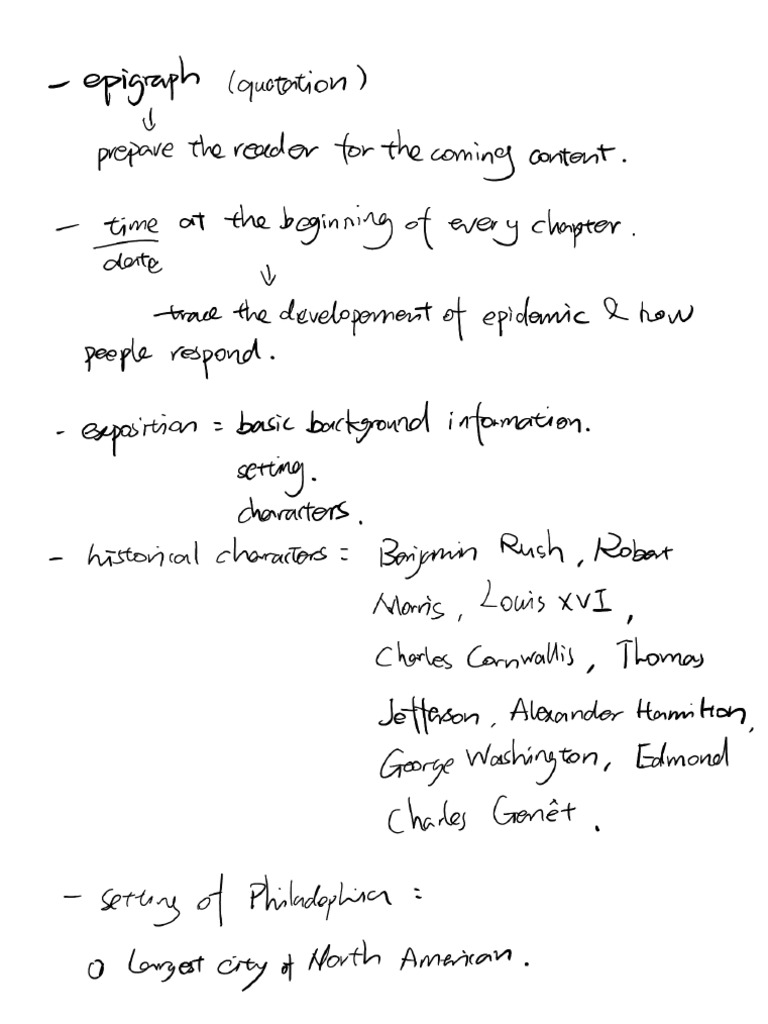 - epigraph (quotation)
↓
prepare the reader for the coming content.
- time at the beginning of every chapter.
date
↓
trace the developement of epidemic & how
peeple respond.
- exposition = basic background information.
setting.
characters.
- historical characters = Benjamin Rush, Robert
Morris, Louis XVI,
Charles Cornwallis, Thomas
Jefferson, Alexander Hamilton,
George Washington, Edmond
Charles Genêt.
- setting of Philadephia =
o Largest city of North American.